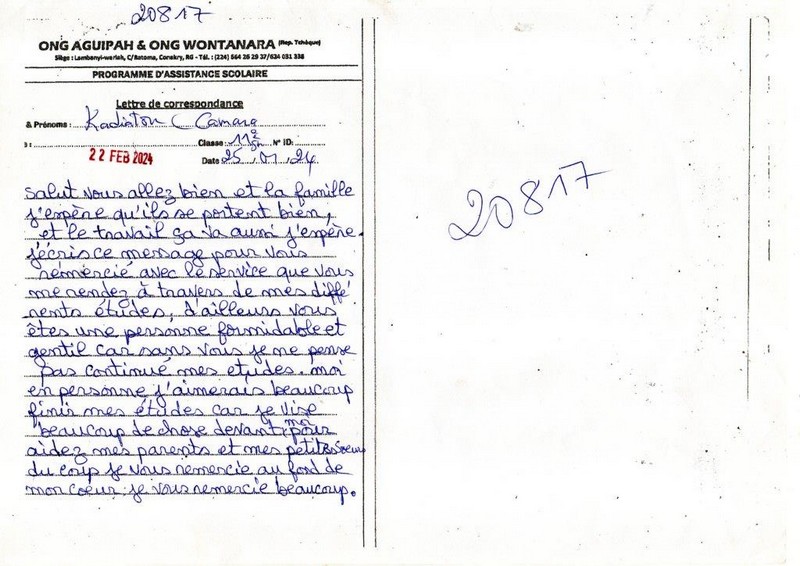 20817
ONG AGUIPAH & ONG WONTANARA (Rep. Tchèque)
Siège : Lambanyi-wariah, C/Ratoma, Conakry, RG - Tél. : (224) 664 26 29 37/624 031 338
PROGRAMME D'ASSISTANCE SCOLAIRE
Lettre de correspondance
& Prénoms : Kadiatou C Camara
Classe : 11e N° ID:
22 FEB 2024 Date 25.01.24
Salut vous allez bien et la famille
j'espère qu'ils se portent bien,
et le travail ça va aussi j'espère.
j'écris ce message pour vous
remercié avec le service que vous
me rendez à travers de mes diffé
rents études, d'ailleurs vous
êtes une personne formidable et
gentil car sans vous je ne pense
pas continué mes etudes. moi
en personne j'aimerais beaucoup
finis mes études car je vise
beaucoup de chose devant moi pour
aidez mes parents et mes petites soeurs
du coup je vous remercie au fond de
mon coeur. je vous remercie beaucoup.
20817